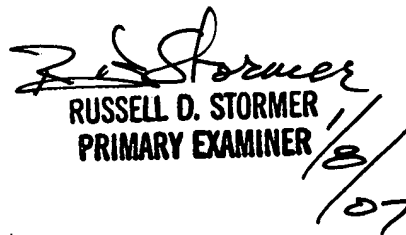 R D Stormer
RUSSELL D. STORMER
PRIMARY EXAMINER 1/8/07